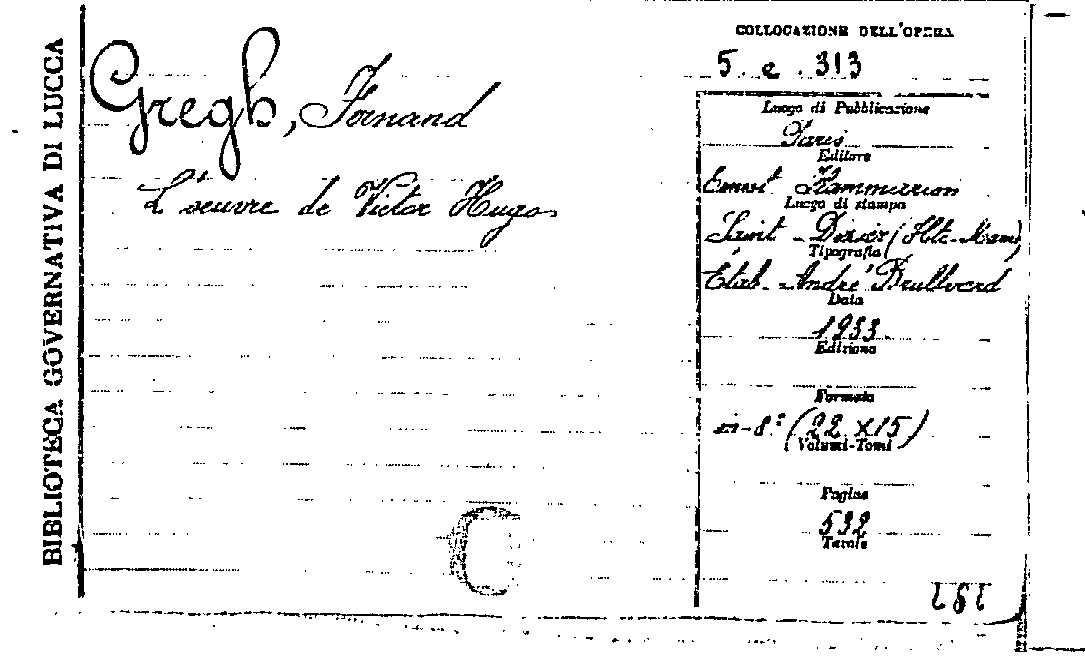 BIBLIOTECA GOVERNATIVA DI LUCCA
Gregh, Fernand
L'oeuvre de Victor Hugo
COLLOCAZIONE DELL'OPERA
5. e. 313
Luogo di Pubblicazione
Paris
Editore
Ernest Flammarion
Luogo di stampa
Saint-Dizier (Hte-Marn)
Tipografia
Étab. André Brulliard
Data
1933
Edizione
Formato
in-8° (22 x 15)
Volumi-Tomi
Pagine
532
Tavole